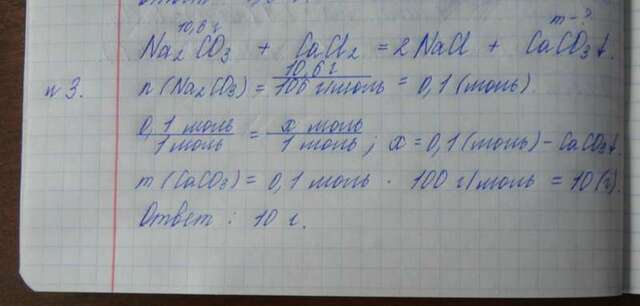 10,6 г m - ?
Na2CO3 + CaCl2 = 2 NaCl + CaCO3↓.
n (Na2CO3) = 10,6 г / 106 г/моль = 0,1 (моль).
N 3.
0,1 моль / 1 моль = x моль / 1 моль ; x = 0,1 (моль) - CaCO3↓.
m (CaCO3) = 0,1 моль · 100 г/моль = 10 (г).
Ответ : 10 г.